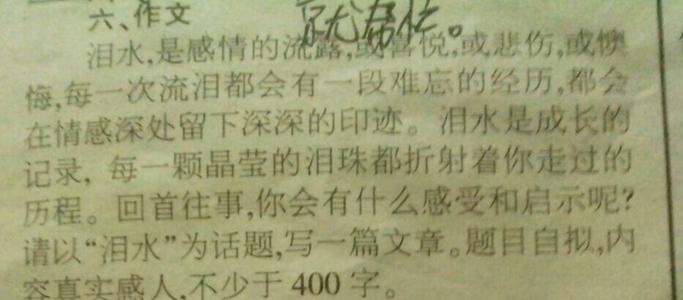 就帮住。
六、作文
泪水,是感情的流露,或喜悦,或悲伤,或懊
悔,每一次流泪都会有一段难忘的经历,都会
在情感深处留下深深的印迹。泪水是成长的
记录,每一颗晶莹的泪珠都折射着你走过的
历程。回首往事,你会有什么感受和启示呢?
请以“泪水”为话题,写一篇文章。题目自拟,内
容真实感人,不少于400字。